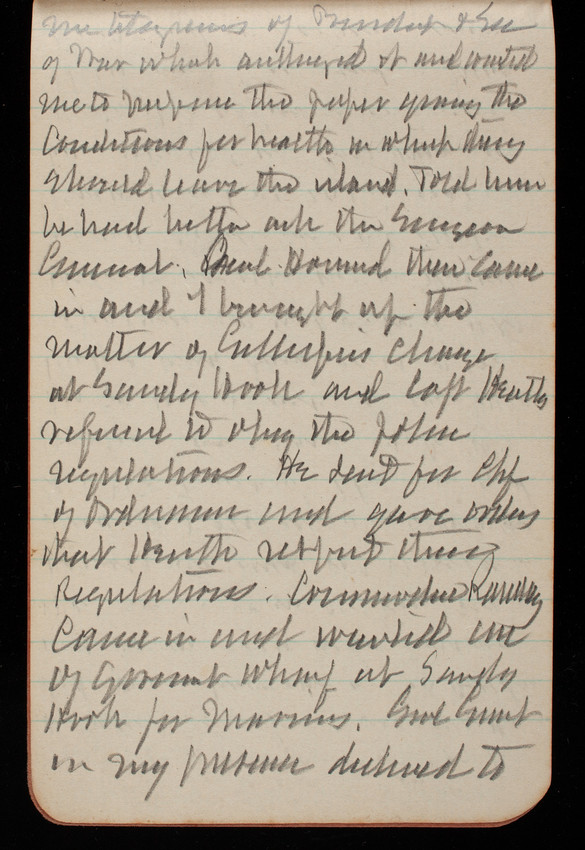 me telegrams of President & Sec
of War which authorized it and wanted
me to prepare the paper giving the
Conditions for health on which they
should leave the island. Told him
he had better ask the Surgeon
General. Genl Howard then came
in and I brought up the
matter of Gillespie's charge
at Sandy Hook and Capt Heath's
refusal to obey the
regulations. He sent for Chf
of Ordnance and gave orders
that Heath respect these
Regulations. Commodore Ramsay
Came in and wanted use
of Govmnt wharf at Sandy
Hook for Marines. Genl
in my presence declined to